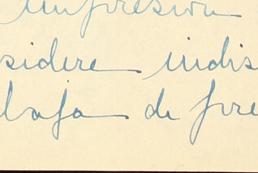 impresión
sidere indis
baja de fore